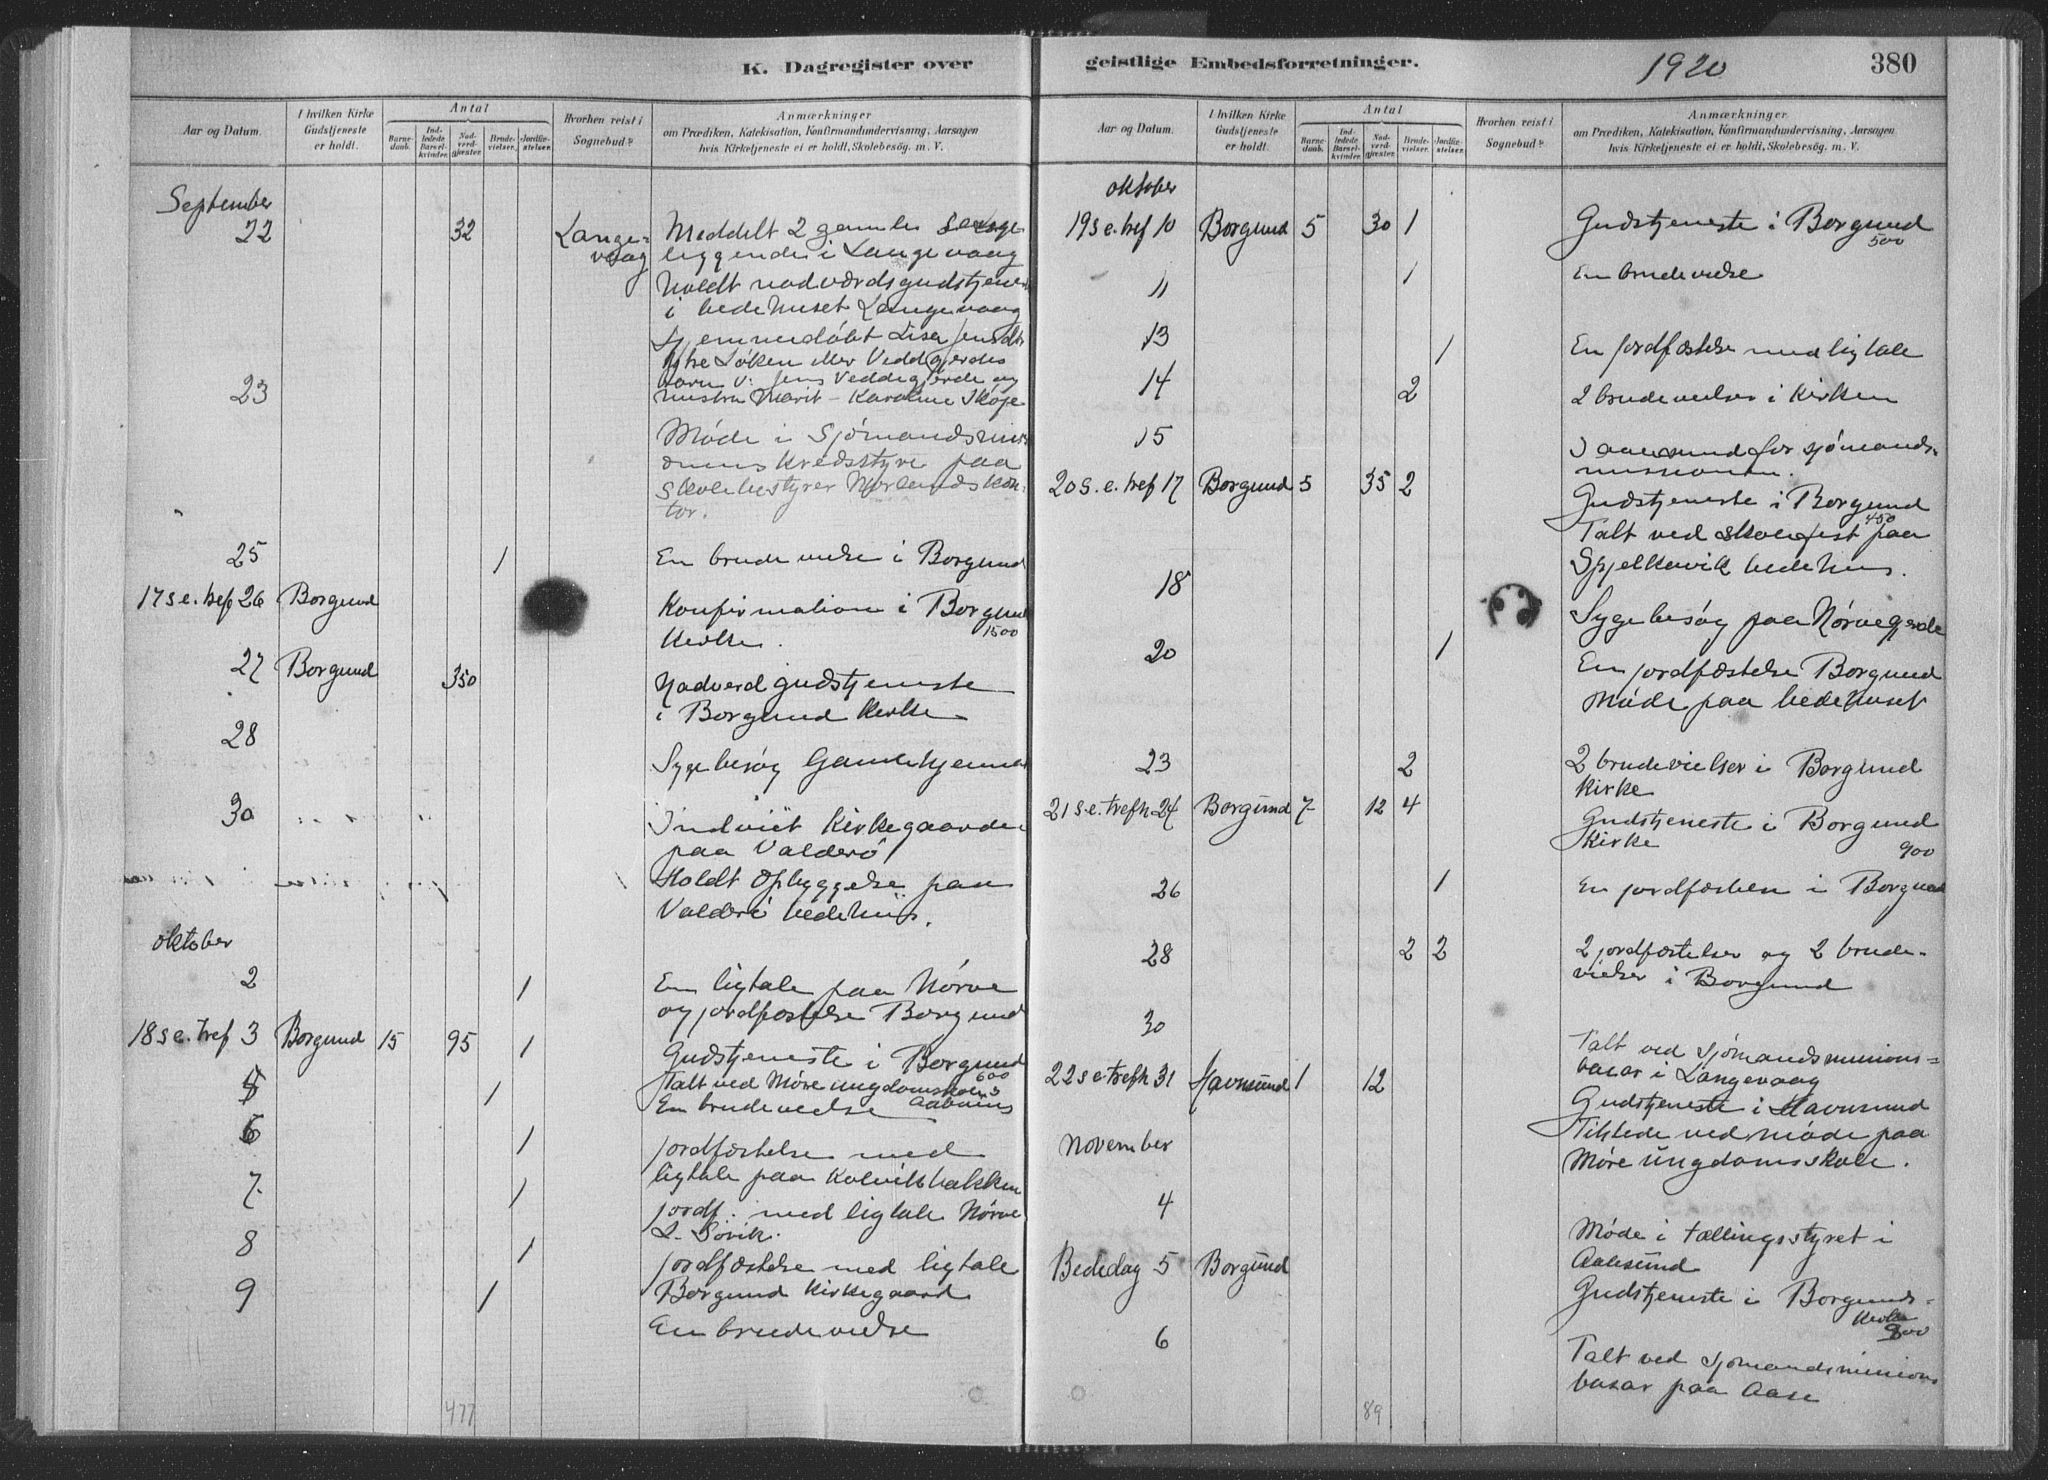 K. Dagregister over
Aar og Datum.
I hvilken Kirke
Gudstjeneste
er holdt.
Antal
Barne-
daab.
Ind-
ledede
Barsel-
kvinder.
Nad-
verd-
gjester.
Brude-
vielser.
Jordfæ-
stelser.
Hvorhen reist i
Sognebud?
Anmærkninger
om Prædiken, Katekisation, Konfirmandundervisning, Aarsagen
hvis Kirketjeneste ei er holdt, Skolebesøg. m. V.
September
22 32 Lange-
vaag
Meddelt 2 gamle
liggende i Langevaag
Holdt nadværdsgudstjenes
i bedehuset Langevaag
23
Møde i Sjømandsmis
onens kredsstyre paa
skolebestyrer Nørlands kon-
tor.
25 1 En brudevielse i Borgund
17 s e. tref 26 Borgund Konfirmation i Borgund
1500
Kirke.
27 Borgund 350 Nadverdgudstjeneste
i Borgund Kirke
28 Sygebesøg Gamlehjemmet
30 Indviet Kirkegaarden
paa Valderø
Holdt Opbyggelse paa
Valderø bedehus.
oktober
2 1 En ligtale paa Nørve
og jordfæstelse Borgund
18 s e. tref 3 Borgund 15 95 1 Gudstjeneste i Borgund
600
Talt ved Møre ungdomsskoles
5 1 En brudevielse
6 1 jordfæstelse med
ligtale paa Kolvikbakken
7 1 jordf. med ligtale Nørve
8 1 jordfæstelse med ligtale
Borgund Kirkegaard
9 1 En brudevielse
477
geistlige Embedsforretninger.
1920
380
Aar og Datum.
I hvilken Kirke
Gudstjeneste
er holdt.
Antal
Barne-
daab.
Ind-
ledede
Barsel-
kvinder.
Nad-
verd-
gjester.
Brude-
vielser.
Jordfæ-
stelser.
Hvorhen reist i
Sognebud?
Anmærkninger
om Prædiken, Katekisation, Konfirmandundervisning, Aarsagen
hvis Kirketjeneste ei er holdt, Skolebesøg. m. V.
oktober
19 s e. tref 10 Borgund 5 30 1 Gudstjeneste i Borgund
500
11 1 En brudevielse
13 1 En jordfæstelse med ligtale
14 2 2 brudevielser i Kirken
15 I Aalesund for sjømands-
missionen.
20 s. e. tref 17 Borgund 5 35 2 Gudstjeneste i Borgund
450
Talt ved skolefest paa
Spjelkavik bedehus.
18 Sygebesøg paa Nørvegjerde
20 1 En jordfæstelse Borgund
Møde paa bedehuset
23 2 2 brudevielser i Borgund
Kirke
21 s e. trefh 24 Borgund 7 12 4 Gudstjeneste i Borgund
Kirke 900
26 1 En jordfæstelse i Borgund
28 2 2 2 jordfæstelser og 2 brude-
vielser i Borgund
30 Talt ved Sjømandsmissions-
basar i Langevaag
22 s e trefh 31 Havnsund 1 12 Gudstjeneste i Havnsund
Tilstede ved møde paa
Møre ungdomsskole.
November
4 Møde i tællingsstyret i
Aalesund
Bededag 5 Borgund Gudstjeneste i Borgunds-
Kirke
900
6 Talt ved sjømandsmissions
basar paa Aase
89